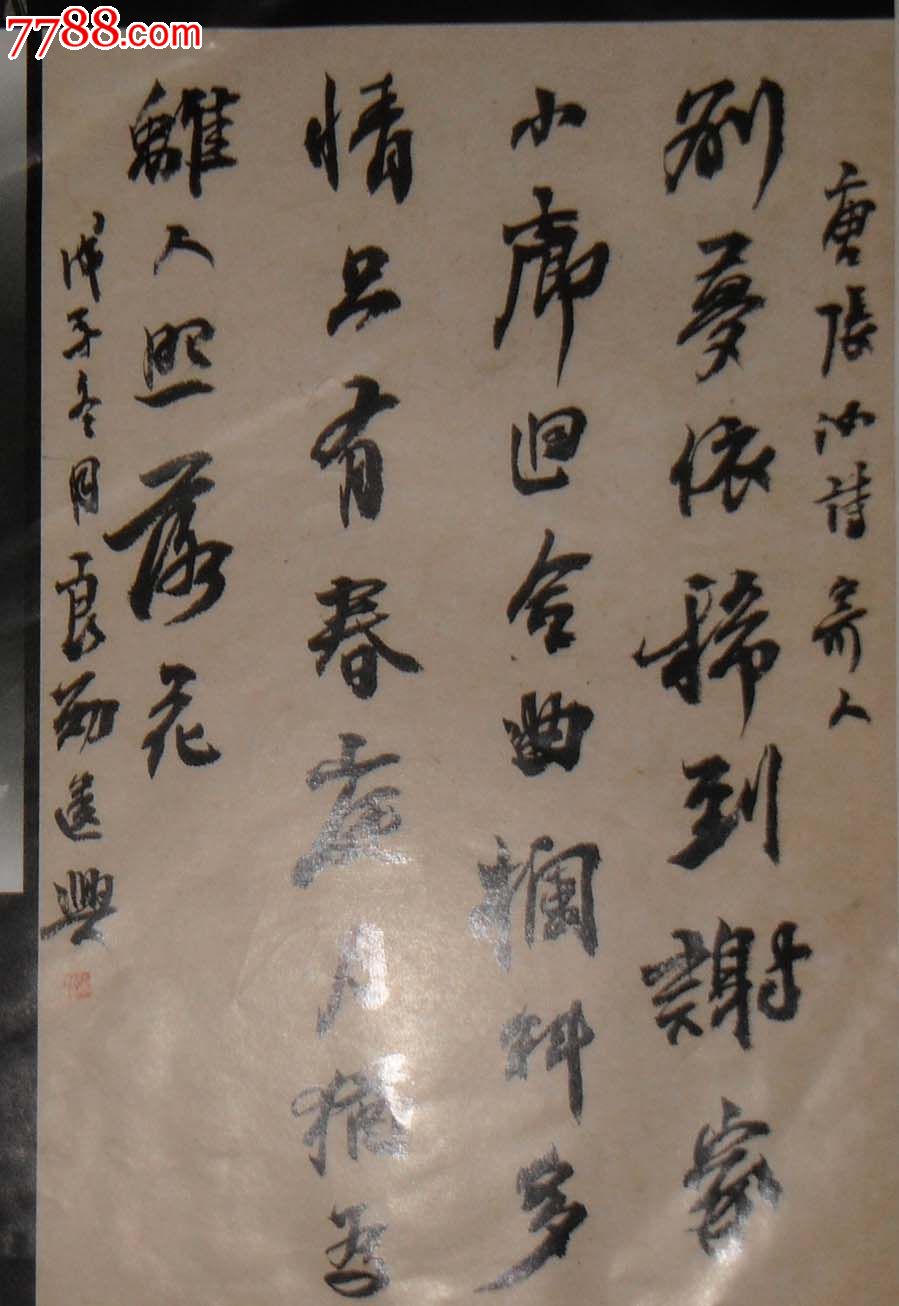 7788.com
唐張泌詩寄人
別夢依稀到謝家
小廊迴合曲欄斜多
情只有春庭月猶為
離人照落花
戊子冬月良遣興